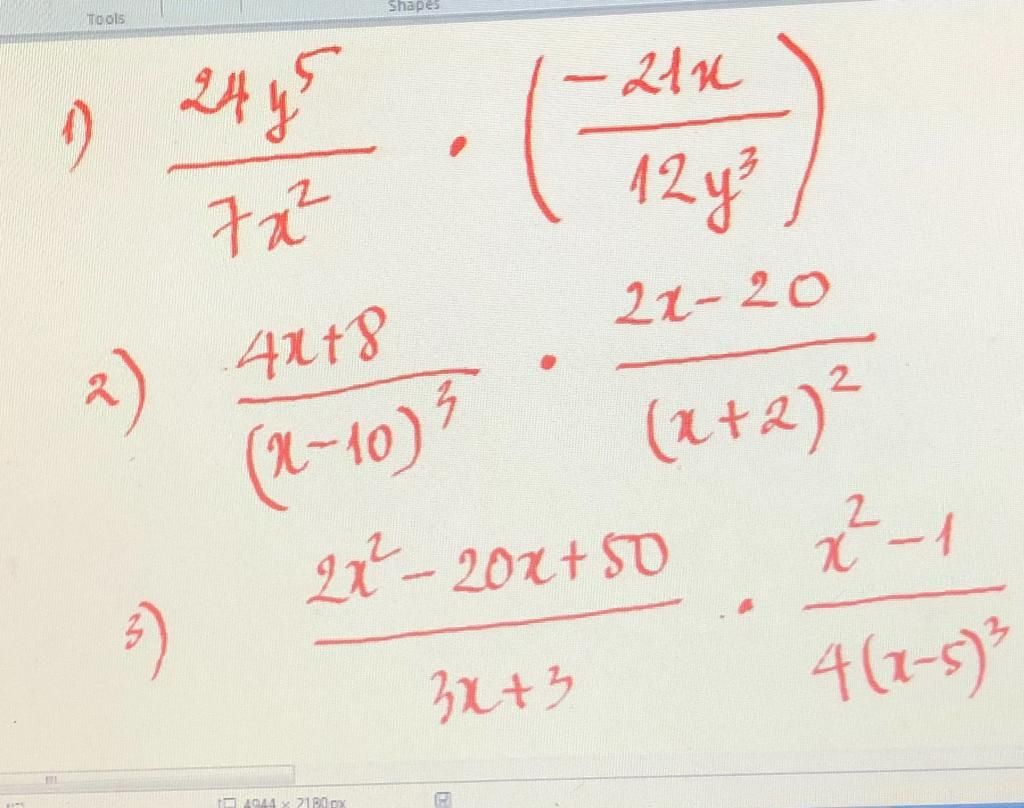 Tools
Shapes
1) \frac{24y^5}{7x^2} \cdot \left(\frac{-21x}{12y^3}\right)
2) \frac{4x+8}{(x-10)^3} \cdot \frac{2x-20}{(x+2)^2}
3) \frac{2x^2-20x+50}{3x+3} \cdot \frac{x^2-1}{4(x-5)^3}
4944 × 2180px